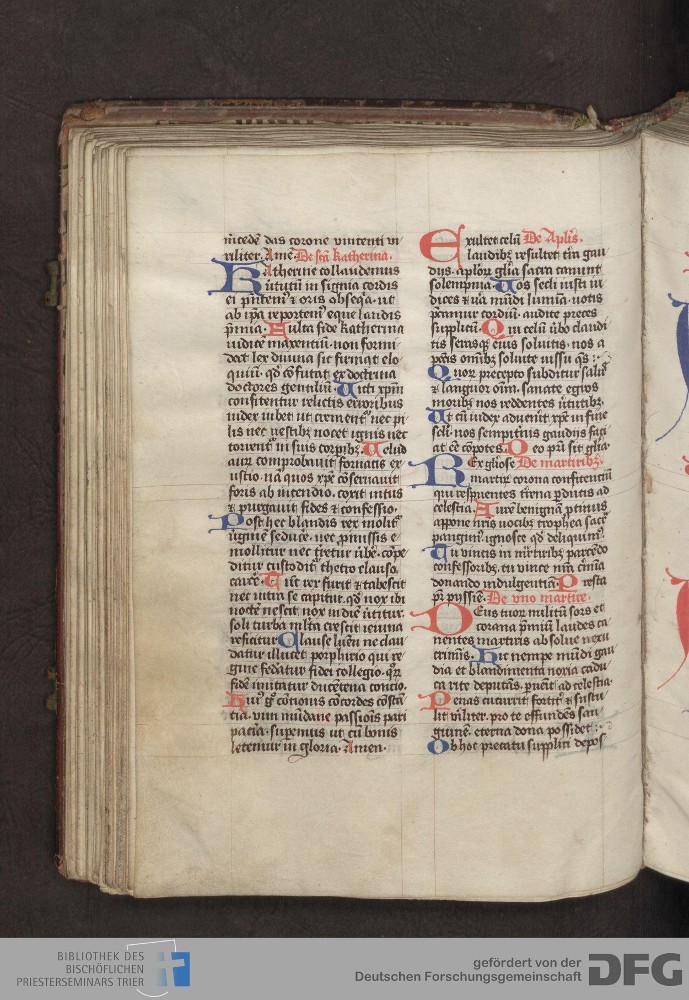 mcedē das corone vincenti vi
riliter. Amē. De scā katherina.
Katherine collaudemus
v̄tutū in signia cordis
ei p̄ntem̄ ⁊ oris obseq̄a. ut
ab ip̄a reportem̄ eque laudis
p̄mia. Fulta fide Katherina
iudicē maxentiū. non formi
dat lex diuina sic firmat elo
quiū. qd̄ cōfutat ex doctrina
doctores gentiliū. Victi xp̄m
confitentur relictis erroribus
iudex iubet ut crement᷑ nec pi
lis nec vestibꝫ nocet ignis nec
torrent᷑ in suis corpibꝫ. Uelud
aux comprobauit fornacis ex
ustio. nā quos xp̄c cōseruauit
foris ab incendio. coxit intus
⁊ purgauit fides ⁊ confessio.
Post hec blandis rex molit᷑
v̄ginē seducē. nec p̄missis e
mollitur nec t̄retur v̄be. cōpe
ditur custodit᷑ thetro clauso
carcē. Tūc rex furit ⁊ tabescit
nec uitm se capitur. qd̄ nox ibi
noctē nescit nox in diē v̄titur.
soli turba mlta crescit ieiuna
reficitur. Clause lumē ne clau
datur illucet porphirio qui re
gine fedatur fidei collegio. q̄ꝝ
fidē imitatur ducētena concio.
Huiꝰ gͦ cōcionis cōcordes cōstā
cia. vim mūdane passiōis pari
paciā. supernis ut cū bonis
letemur in gloria. Amen.
Exultet celū De Apl̄is.
laudibꝫ resultet t̄ra gau
dijs. aploꝝ glia sacra canunt
solempnia. Vos secli iusti iu
dices ⁊ v̄a mūdi lumīa. uotis
p̄camur cordiū. audite preces
supplicū. Qui celū v̄bo claudi
tis serasqꝫ eius soluitis. nos a
pctīs om̄ibꝫ soluite iussu q̄s
Quoꝝ precepto subditur salus
⁊ languor oīm. sanate egros
moribꝫ nos reddentes v̄tutibꝫ.
Ut cū iudex aduen̄it xp̄c in fine
scl̄i. nos sempit̄nis gaudijs faci
at ēe cōpotes. Deo pr̄i sit glīa.
Rex glīose De martiribꝫ.
martirꝫ corona confitentiū
qui respuentes t̄rena p̄ducis ad
celestia. Aurē benignā ptinus
appone nr̄is uocibꝫ trophea sac̄
pangim̄. ignosce qd̄ deliquim̄.
Tu vincis in mr̄tiribꝫ parcēdo
confessoribꝫ. tu vince nr̄a cīmīa
donando indulgentiā. Presta
pr̄ pijssie. De vno martire.
Deus tuoꝝ militū sors et
corana p̄miū laudes ca
nentes martiris absolue nexu
crimīs. Hic nempe mūdi gau
dia et blandimenta noxia cadu
ca rite deputās. puēit ad celestia.
Penas cucurrit fortit᷑ ⁊ sustu
lit viriliter. pro te effundēs san
guinē. eterna dona possidet
Ob hoc precatu supplici depos
BIBLIOTHEK DES
BISCHÖFLICHEN
PRIESTERSEMINARS TRIER
gefördert von der
Deutschen Forschungsgemeinschaft
DFG